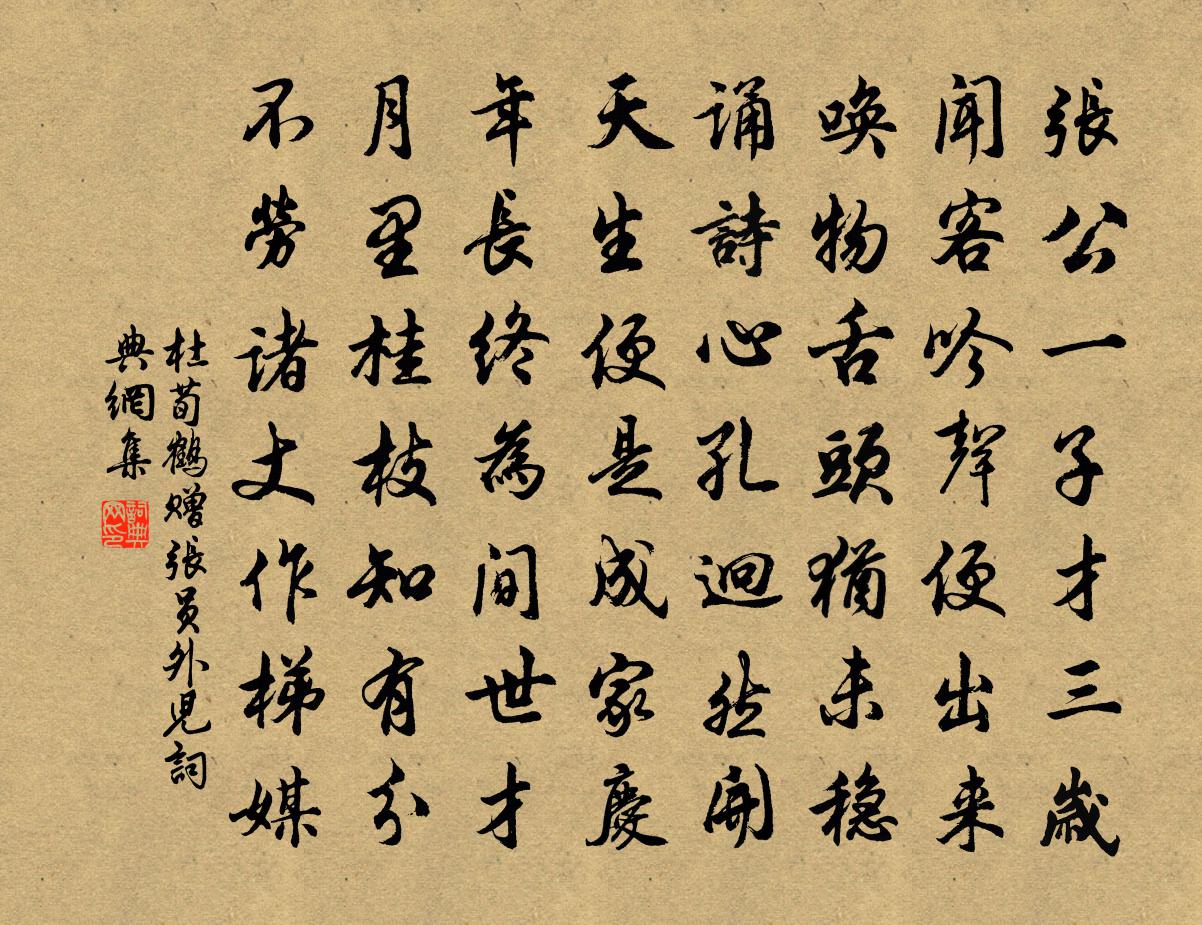 張公一子才三歲
聞客吟聲便出来
喚物舌頭猶未穏
誦詩心孔迥然開
天生便是成家慶
年長終為間世才
月里桂枝知有分
不勞諸丈作梯媒
杜荀鶴赠張員外兒詞
典網集
詞典
网印